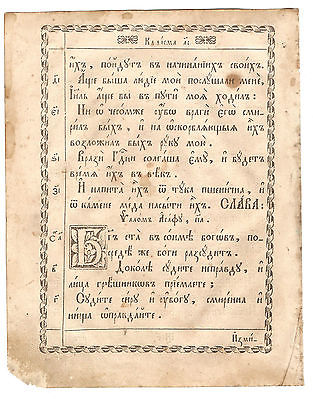 Каѳисма а҃і
и҆́хъ, пойдꙋтъ въ начинанїихъ своихъ.
д҃і А҆́ще бы́ша лю́дїе мои̑ послꙋ́шали менѐ,
і҆и҃ль а҆́ще бы въ пꙋти̑ моѧ̑ ходи́лъ:
є҃і Ни ѡ҆ чесо́мже ᲂу҆́бѡ врагѝ є҆гѡ̀ сми-
ри́лъ бы́хъ, и҆ на ѡ҆скорблѧ́ющыѧ и҆́хъ
возложи́лъ бы́хъ рꙋ́кꙋ мою̀.
ѕ҃і Вразѝ гд҇ни солга́ша є҆мꙋ̀, и҆ бꙋ́детъ
вре́мѧ и҆́хъ въ вѣ́къ.
з҃і И҆ напита̀ и҆́хъ ѿ тꙋ́ка пшени́чна, и҆
ѿ ка́мене ме́да насы́ти и҆́хъ. СЛА́ВА:
Ѱало́мъ А҆са́фꙋ, п҃а.
Бг҃ъ ста̀ въ со́нмѣ богѡ́въ, по-
средѣ́ же бо́ги разсꙋ́дитъ.
в҃ Доко́лѣ сꙋ́дите непра́вдꙋ, и҆
ли́ца грѣ́шникѡвъ прїе́млете;
г҃ Сꙋди́те си́рꙋ и҆ ᲂу҆бо́гꙋ, смире́нна и҆
ни́ща ѡ҆правда́йте.
И҆зми́-